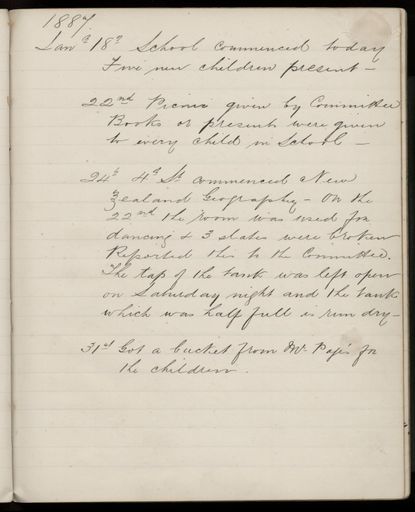 1887.
Jan 18th School commenced today
Five new children present -
22nd Picnic given by Committee
Books or presents were given
to every child in School -
24th 4th St. commenced New
Zealand Geography - On the
22nd the room was used for
dancing & 3 slates were broken
Reported this to the Committee.
The tap of the tank was left open
on Saturday night and the tank
which was half full is run dry -
31st Got a bucket from Mr. for
the children.